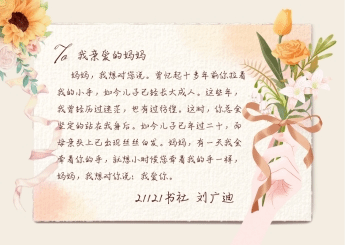 To 我亲爱的妈妈
妈妈，我想对您说。曾忆起十多年前你拉着
我的小手，如今儿子已经长大成人。这些年，
我曾经历过迷茫，也有过彷徨。这时，你总会
坚定的站在我身后。如今儿子已年过二十，而
母亲头上已出现丝丝白发。妈妈，有一天我会
牵着你的手，就想小时候您牵着我的手一样，
妈妈，我想对你说：我爱你。
21121书社 刘广迪